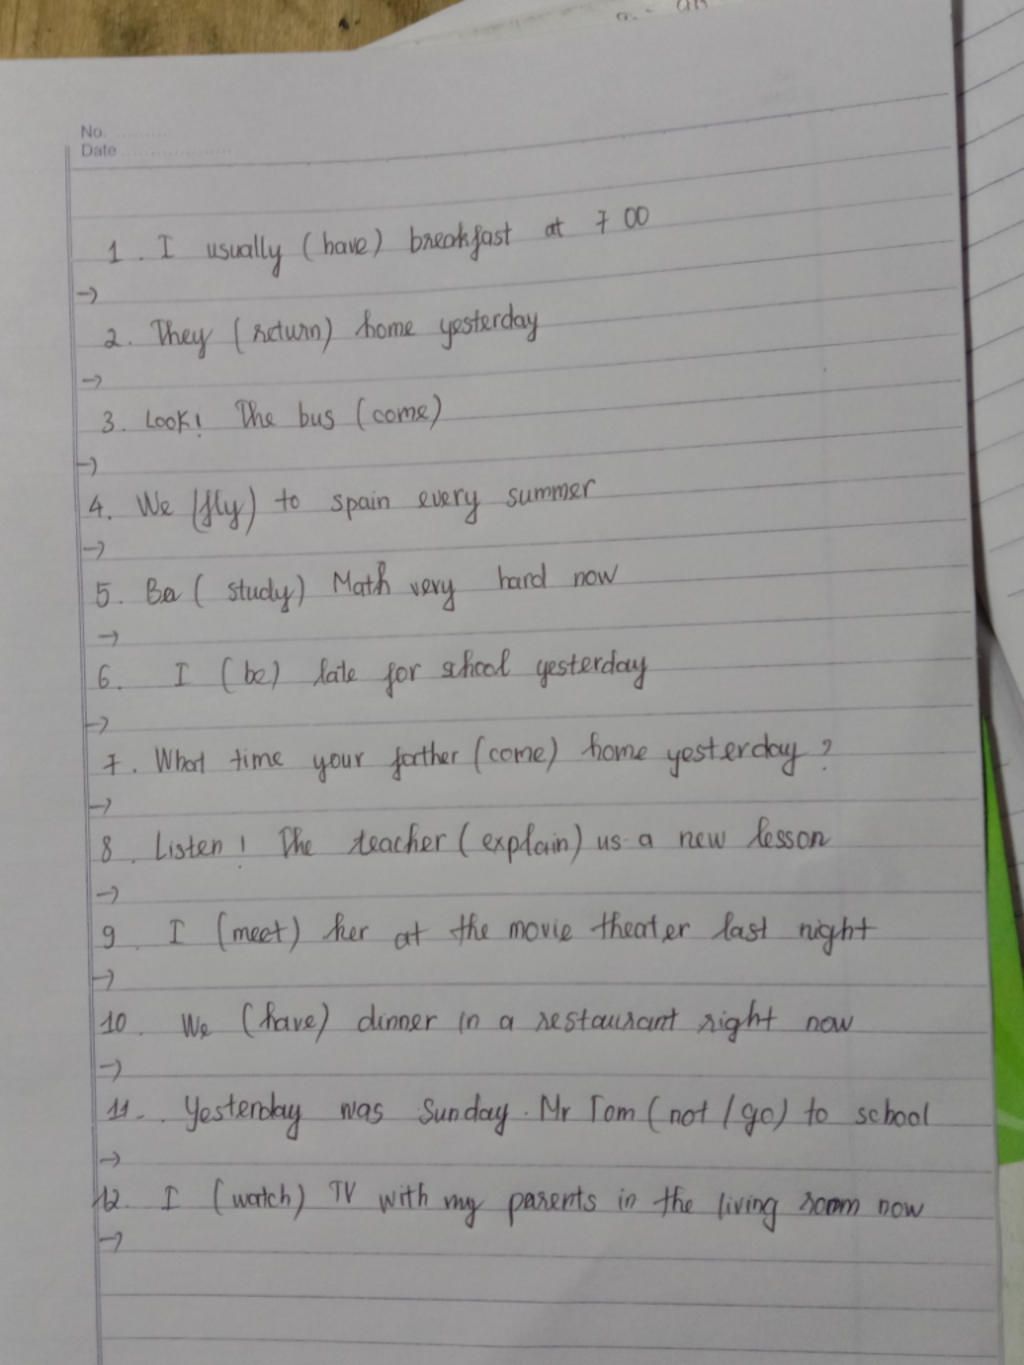 No.
Date
1. I usually (have) breakfast at 7 00
→
2. They (return) home yesterday
→
3. Look! The bus (come)
→
4. We (fly) to spain every summer
→
5. Ba ( study) Math very hard now
→
6. I (be) late for school yesterday
→
7. What time your farther (come) home yesterday?
→
8. Listen! The teacher (explain) us a new lesson
→
9 I (meet) her at the movie theater last night
→
10. We (have) dinner in a restaurant right now
→
11. Yesterday was Sunday. Mr Tom (not / go) to school
→
12. I (watch) TV with my parents in the living room now
→